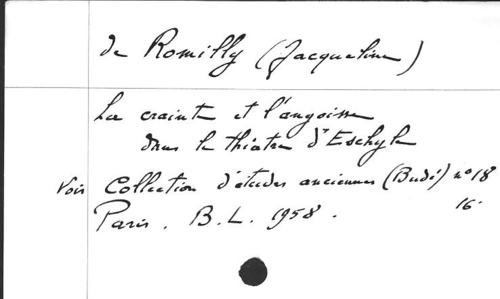 de Romilly (Jacqueline)
La crainte et l'angoisse
dans le théatre d'Eschyle
Voir Collection d'études anciennes (Budé) n° 18
16.
Paris. B.L. 1958.